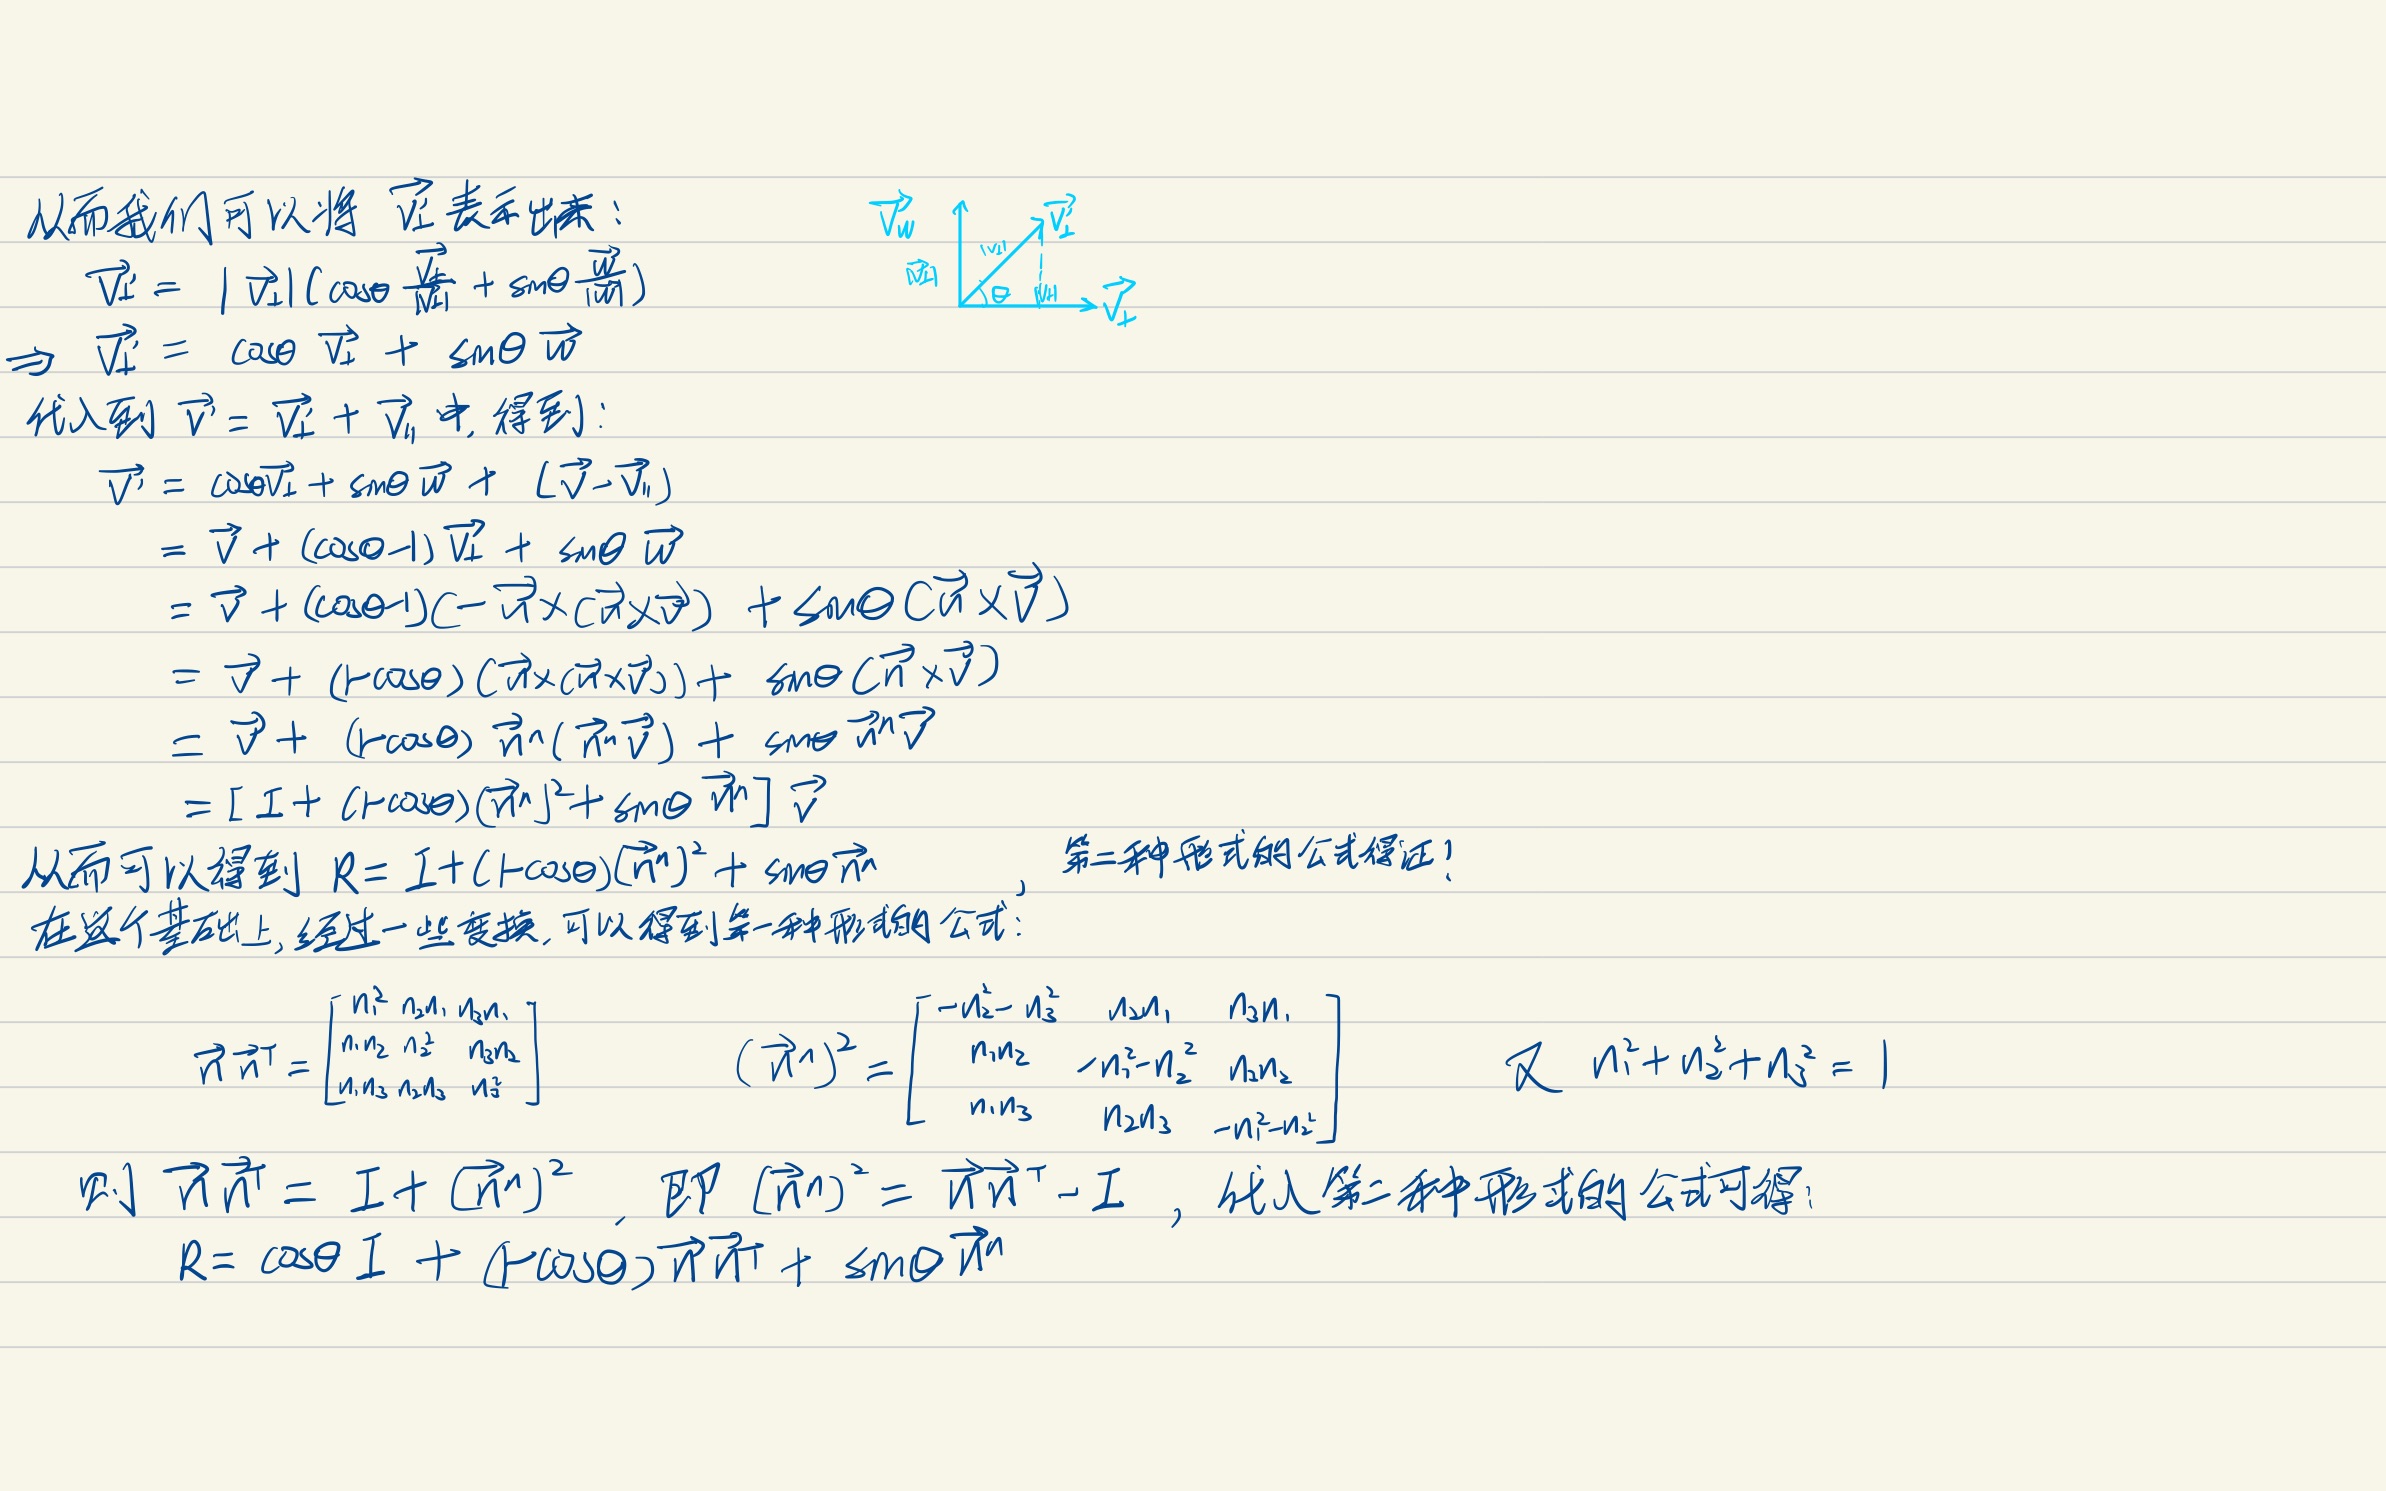 从而我们可以将 $\vec{v_\perp'}$ 表示出来：
$\vec{v_\perp'} = |\vec{v_\perp}|(\cos\theta \frac{\vec{v_\perp}}{|\vec{v_\perp}|} + \sin\theta \frac{\vec{w}}{|\vec{w}|})$
$\Rightarrow \vec{v_\perp'} = \cos\theta \vec{v_\perp} + \sin\theta \vec{w}$
$\vec{V_w}$
$\vec{v_\perp'}$
$|v_\perp'|$
θ
$\vec{V_\perp}$
代入到 $\vec{v'} = \vec{v_\perp'} + \vec{v_{\parallel}}$ 中, 得到：
$\vec{v'} = \cos\theta \vec{v_\perp} + \sin\theta \vec{w} + (\vec{v} - \vec{v_{\parallel}})$
$= \vec{v} + (\cos\theta - 1)\vec{v_\perp} + \sin\theta \vec{w}$
$= \vec{v} + (\cos\theta - 1)(-\vec{n} \times (\vec{n} \times \vec{v}) + \sin\theta (\vec{n} \times \vec{v})$
$= \vec{v} + (1-\cos\theta)(\vec{n} \times (\vec{n} \times \vec{v})) + \sin\theta (\vec{n} \times \vec{v})$
$= \vec{v} + (1-\cos\theta) \vec{n}^\wedge (\vec{n}^\wedge \vec{v}) + \sin\theta \vec{n}^\wedge \vec{v}$
$= [I + (1-\cos\theta)(\vec{n}^\wedge)^2 + \sin\theta \vec{n}^\wedge] \vec{v}$
从而可以得到 $R = I + (1-\cos\theta)(\vec{n}^\wedge)^2 + \sin\theta \vec{n}^\wedge$ , 第二种形式的公式得证！
在这个基础上, 经过一些变换, 可以得到第一种形式的公式：
$\vec{n}\vec{n}^T = \begin{bmatrix} n_1^2 & n_2n_1 & n_3n_1 \\ n_1n_2 & n_2^2 & n_3n_2 \\ n_1n_3 & n_2n_3 & n_3^2 \end{bmatrix}$ $(\vec{n}^\wedge)^2 = \begin{bmatrix} -n_2^2-n_3^2 & n_2n_1 & n_3n_1 \\ n_1n_2 & -n_1^2-n_2^2 & n_2n_2 \\ n_1n_3 & n_2n_3 & -n_1^2-n_2^2 \end{bmatrix}$ 又 $n_1^2 + n_2^2 + n_3^2 = 1$
则 $\vec{n}\vec{n}^T = I + (\vec{n}^\wedge)^2$ , 即 $(\vec{n}^\wedge)^2 = \vec{n}\vec{n}^T - I$ , 代入第二种形式的公式可得：
$R = \cos\theta I + (1-\cos\theta)\vec{n}\vec{n}^T + \sin\theta \vec{n}^\wedge$